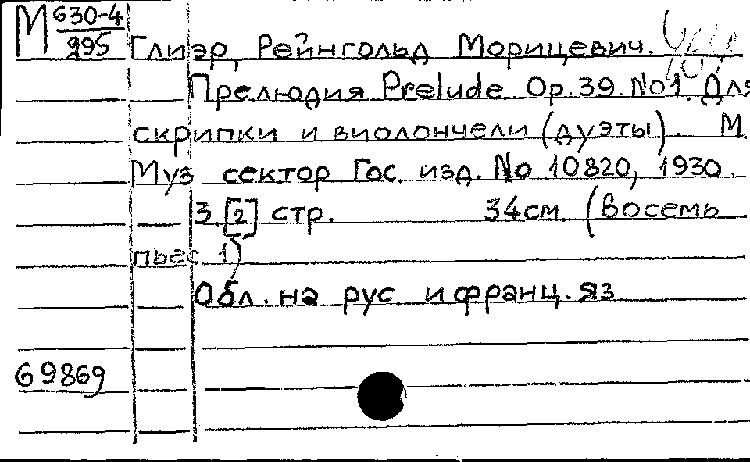 М 630-4
995
Глиэр, Рейнгольд Морицевич.
Прелюдия Prelude Op.39.No1. Для
скрипки и виолончели (дуэты). М.
Муз сектор Гос. изд. No 10820, 1930.
3.[2] стр. 34см. (Восемь
пьес 1)
Обл. на рус и франц. яз
69869